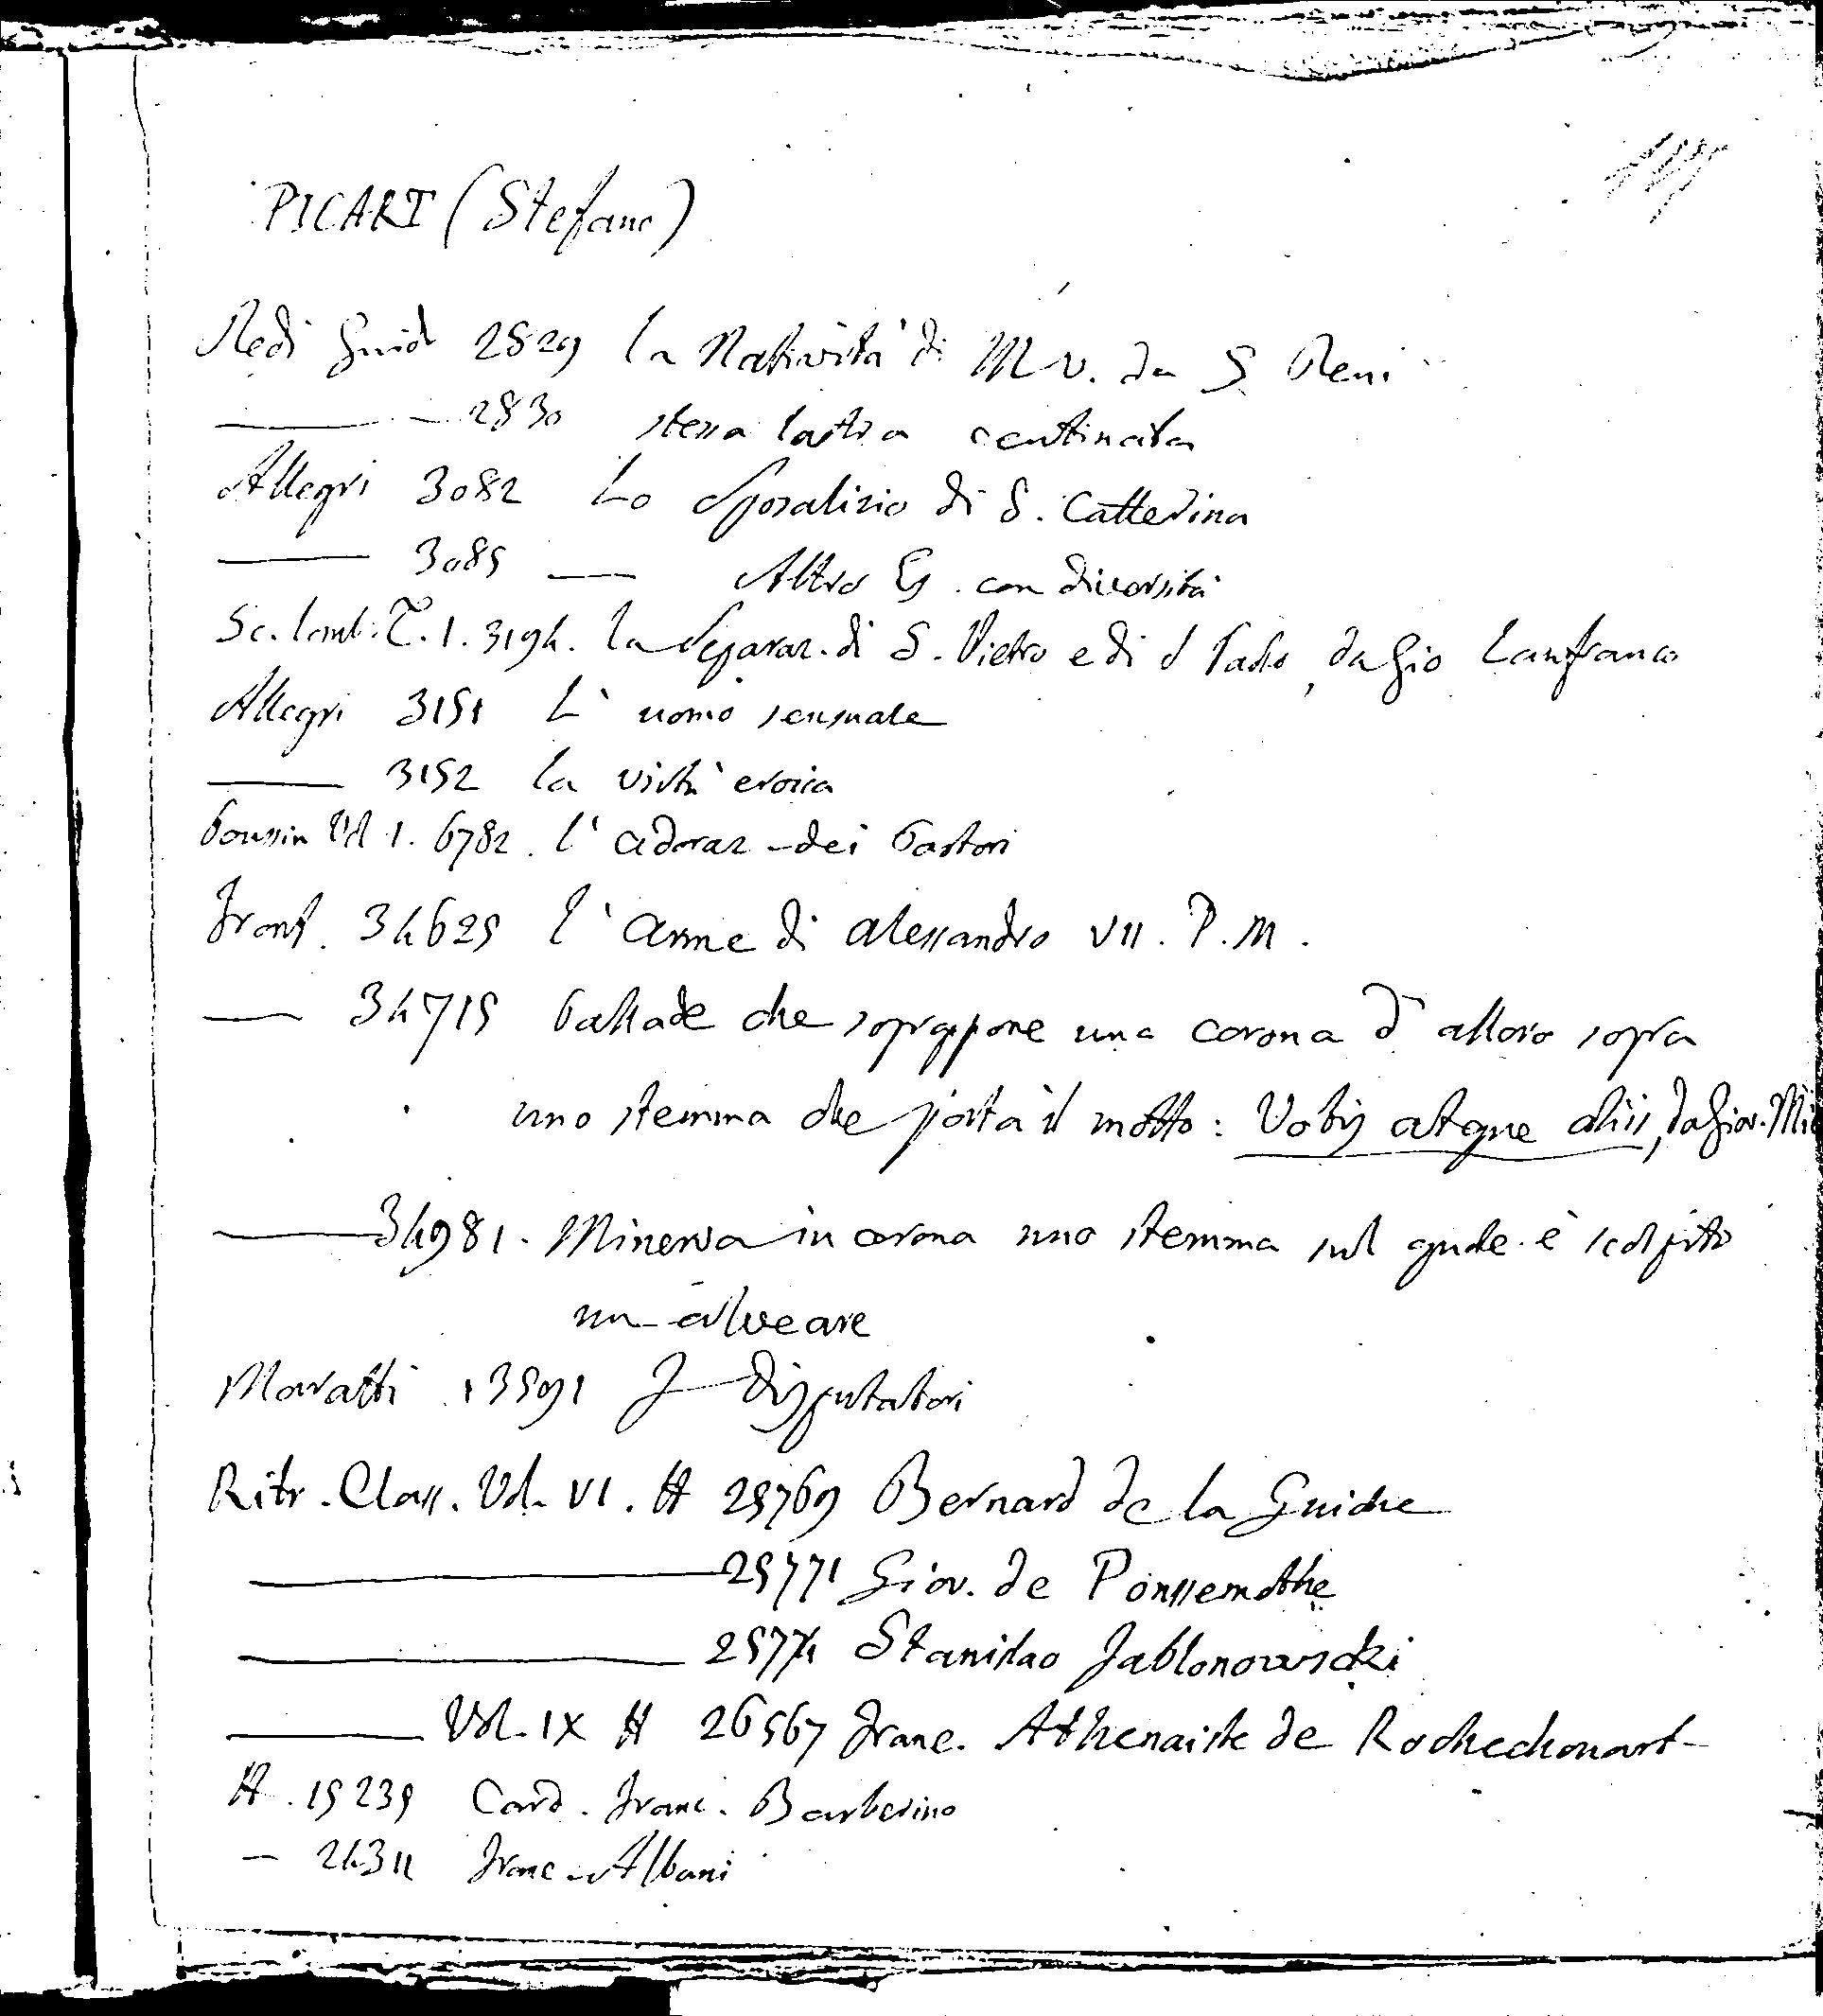 PICART (Stefano)
Redi Guid 2829 la Natività di M V. da G Reni
——— 2830 stessa lastra centinata
Allegri 3082 Lo Sposalizio di S. Catterina
——— 3085 —— Altro Es. con diversità
Sc. lomb. T. 1. 3194. la Separaz. di S. Pietro e di S Paolo, da Gio Lanfranco
Allegri 3151 L' uomo sensuale
——— 3152 la virtù eroica
Poussin Vol 1. 6782. l' adoraz - dei Pastori
Front. 34625 l' arme di Alessandro VII. P. M.
—— 34715 Pallade che soprappone una corona d' alloro sopra
uno stemma che porta il motto: Vobis atque aliis, da Giov.
——— 34981. Minerva incorona uno stemma sul quale è scolpito
un alveare
Maratti 13591 I Disputatori
Ritr. Class. Vol. VI. H 25769 Bernard de la Guiche
——— 25771 Giov. de Ponssemothe
——— Stanislao Jablonowscki
——— Vol. IX H 26567 Franc. Athenaiste de Rochechouart
H. 15239 Card. Franc. Barberino
— 24311 Franc. Albani